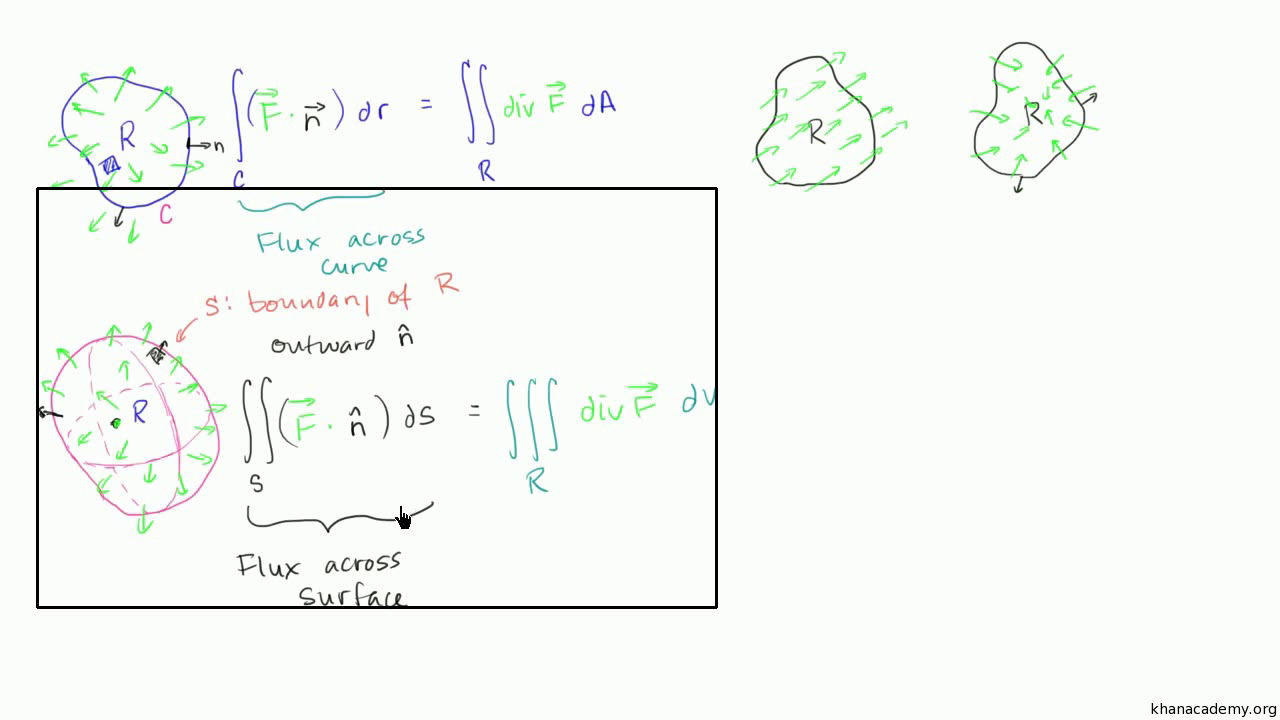 R
n
C
∫_C (F⃗ · n⃗) dr = ∬_R div F⃗ dA
Flux across
curve
R
R
S: boundary of R
outward n̂
R
∬_S (F⃗ · n̂) dS = ∭_R div F⃗ dV
Flux across
surface
khanacademy.org